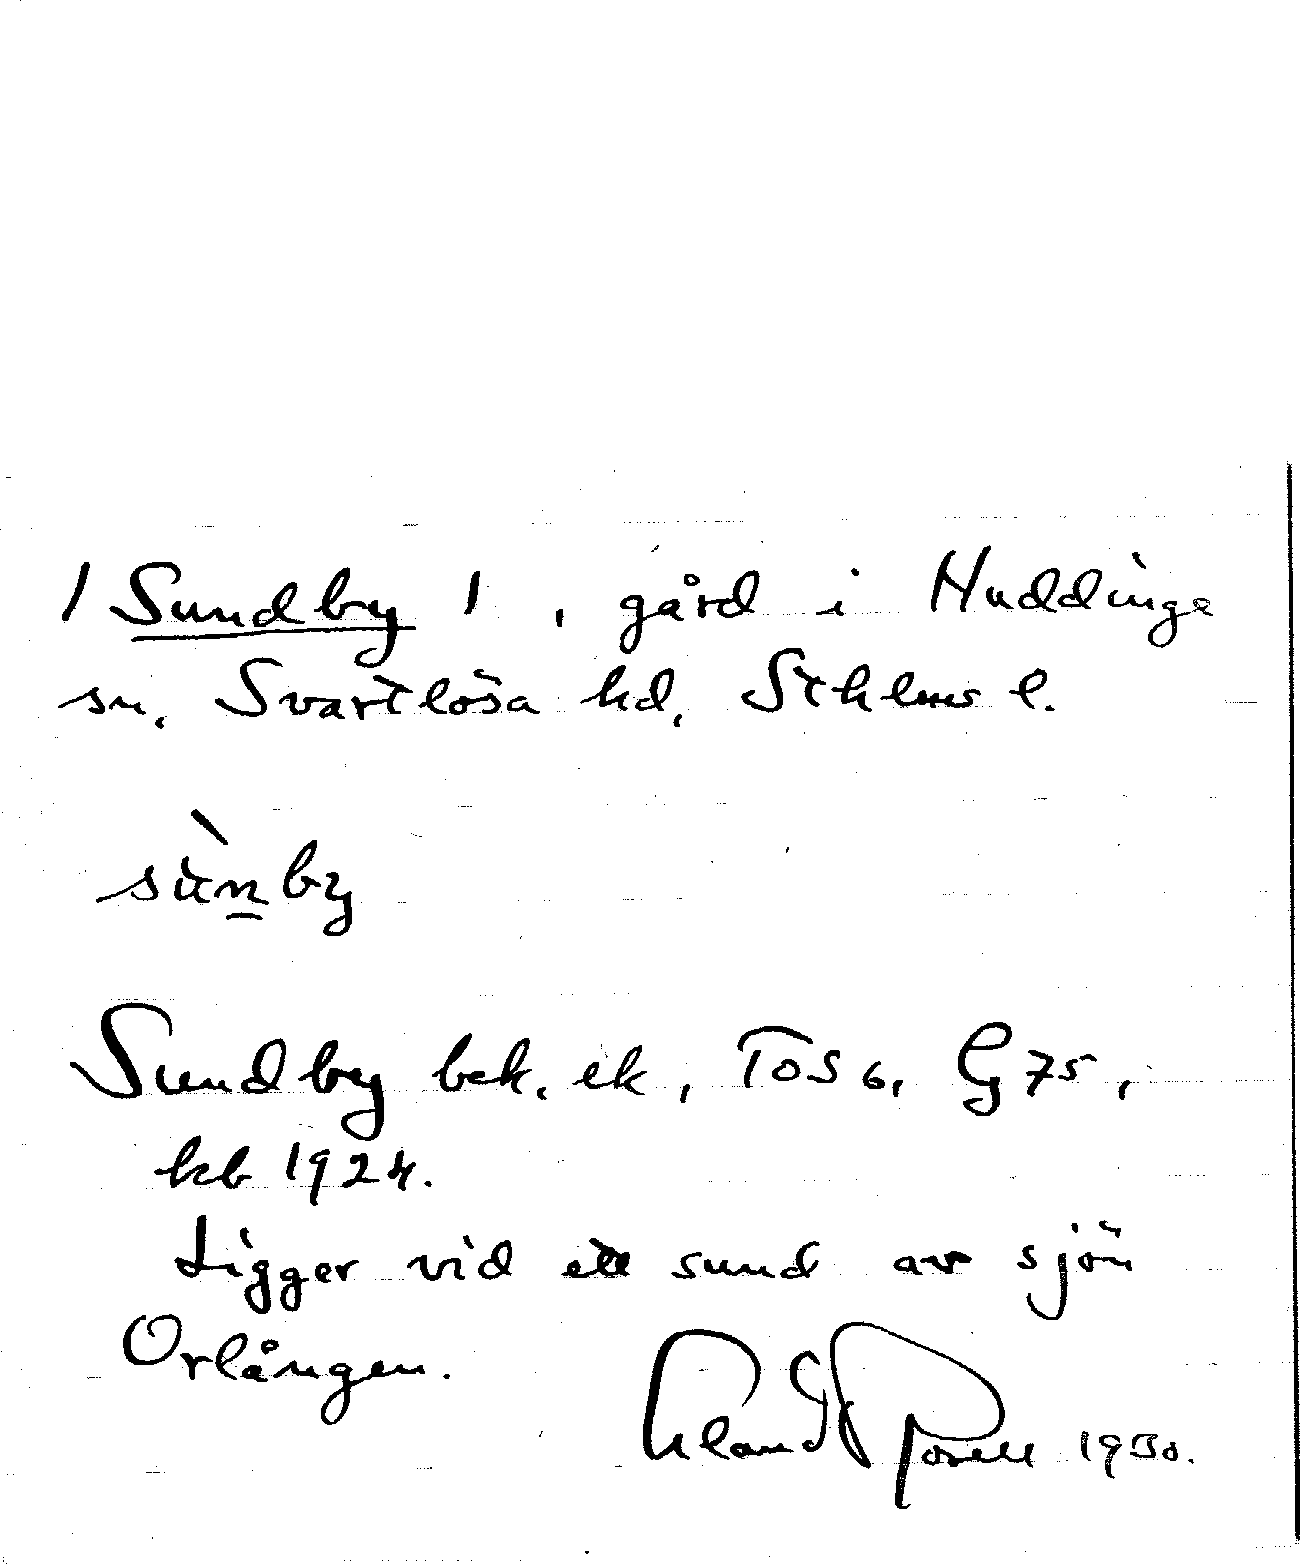 / Sundby / , gård i Huddinge
sn, Svartlösa hd, Sthlms l.
sùn̲by
Sundby bek. ek, TOS 6, G 75,
kb 1924.
Ligger vid ett sund av sjön
Orlången.
1930.